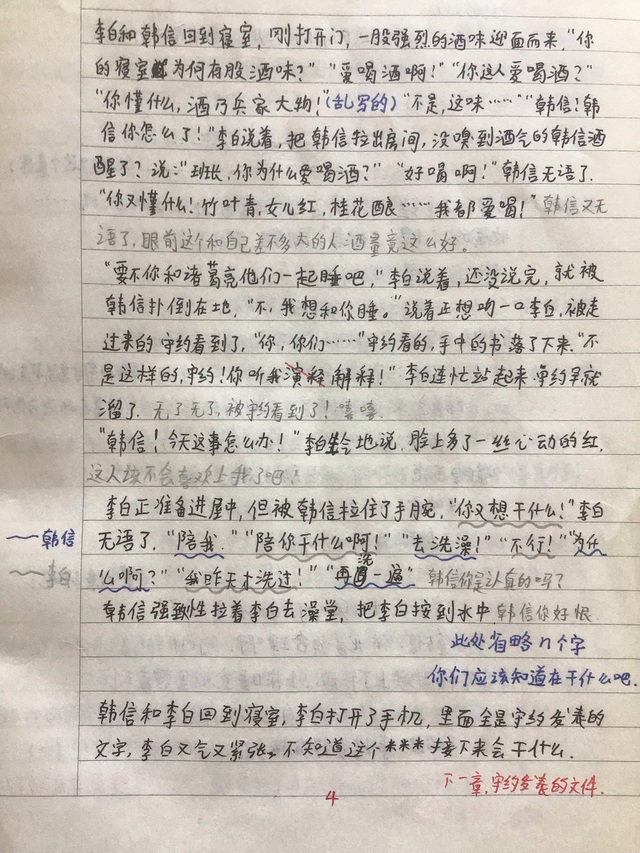 李白和韩信回到寝室，刚打开门，一股强烈的酒味迎面而来，“你
的寝室为何有股酒味？”“爱喝酒啊！”“你这人爱喝酒？”
“你懂什么，酒乃兵家大物！(乱写的)“不是，这味……”“韩信！韩
信你怎么了！”李白说着，把韩信拉出房间，没嗅到酒气的韩信酒
醒了？说：“班长，你为什么爱喝酒？”“好喝啊！”韩信无语了.
“你又懂什么！竹叶青，女儿红，桂花酿……我都爱喝！”韩信又无
语了，眼前这个和自己差不多大的人酒量竟这么好。
“要不你和诸葛亮他们一起睡吧，”李白说着，还没说完，就被
韩信扑倒在地，“不，我想和你睡。”说着正想吻一口李白，被走
过来的守约看到了，“你，你们……”守约看的，手中的书落了下来.“不
是这样的，守约！你听我演释解释！”李白连忙站起来，守约早就
溜了. 完了完了，被守约看到了！嘻嘻.
“韩信！今天这事怎么办！”李白地说，脸上多了一丝心动的红.
这人该不会喜欢上我了吧！
李白正准备进屋中，但被韩信拉住了手腕，“你又想干什么！”李白
无语了，“陪我.”“陪你干什么啊！”“去洗澡！”“不行！”“为什
么啊？”“我昨天才洗过！”“再洗一遍”韩信你是认真的吗？
——韩信
——李白
韩信强致性拉着李白去澡堂，把李白按到水中 韩信你好狠
此处省略n个字
你们应该知道在干什么吧.
韩信和李白回到寝室，李白打开了手机，里面全是守约发表的
文字，李白又气又紧张，不知道这个***接下来会干什么.
下一章，守约发表的文件.
4